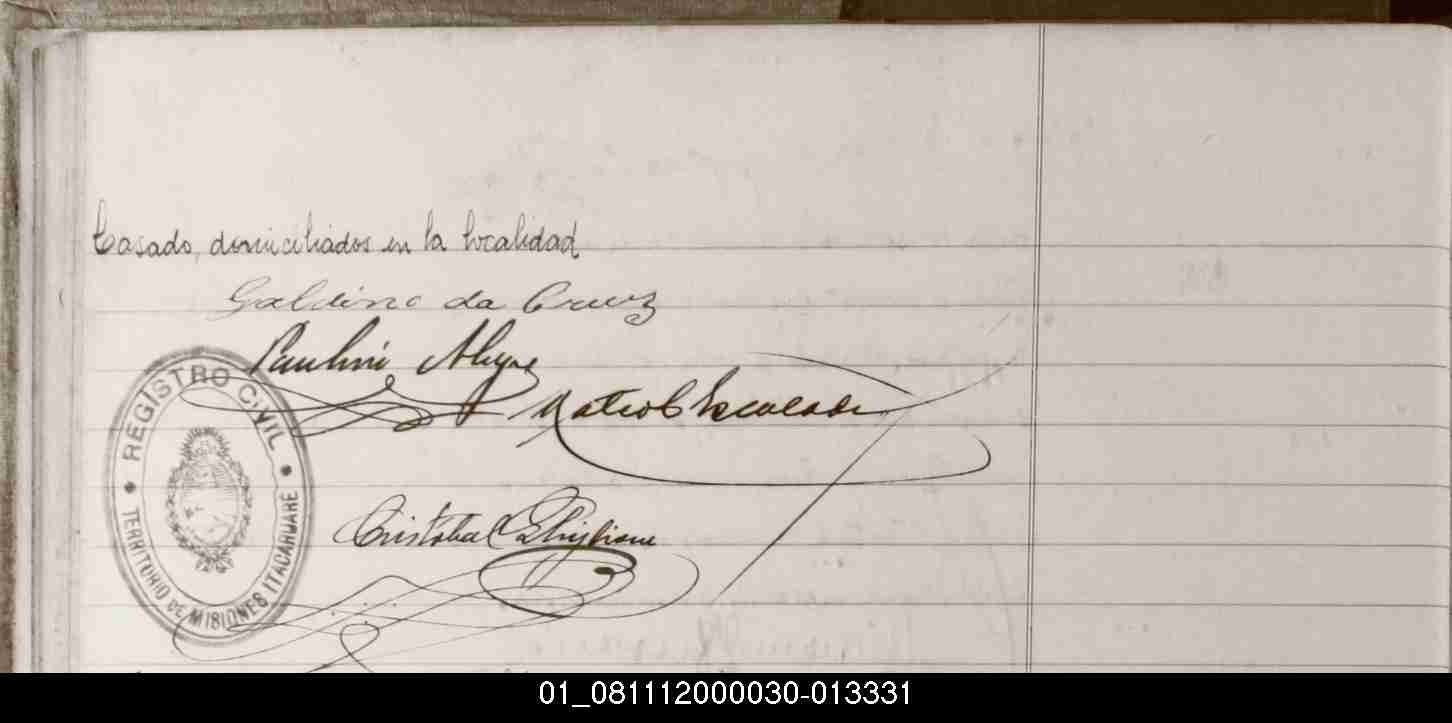 Casado, domiciliados en la localidad
Galdino da Cruz
Paulino
Mateo Escalada
Cristobal Ghiglione
REGISTRO CIVIL
TERRITORIO DE MISIONES ITACARUARE
01_081112000030-013331